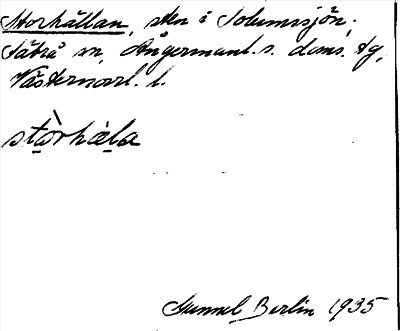 Storhällan, sten i Solumssjön,
Säbrå sn, Ångermanl. s. doms. tg,
Västernorrl. l.
stòrhàla
Gunnel Berlin 1935